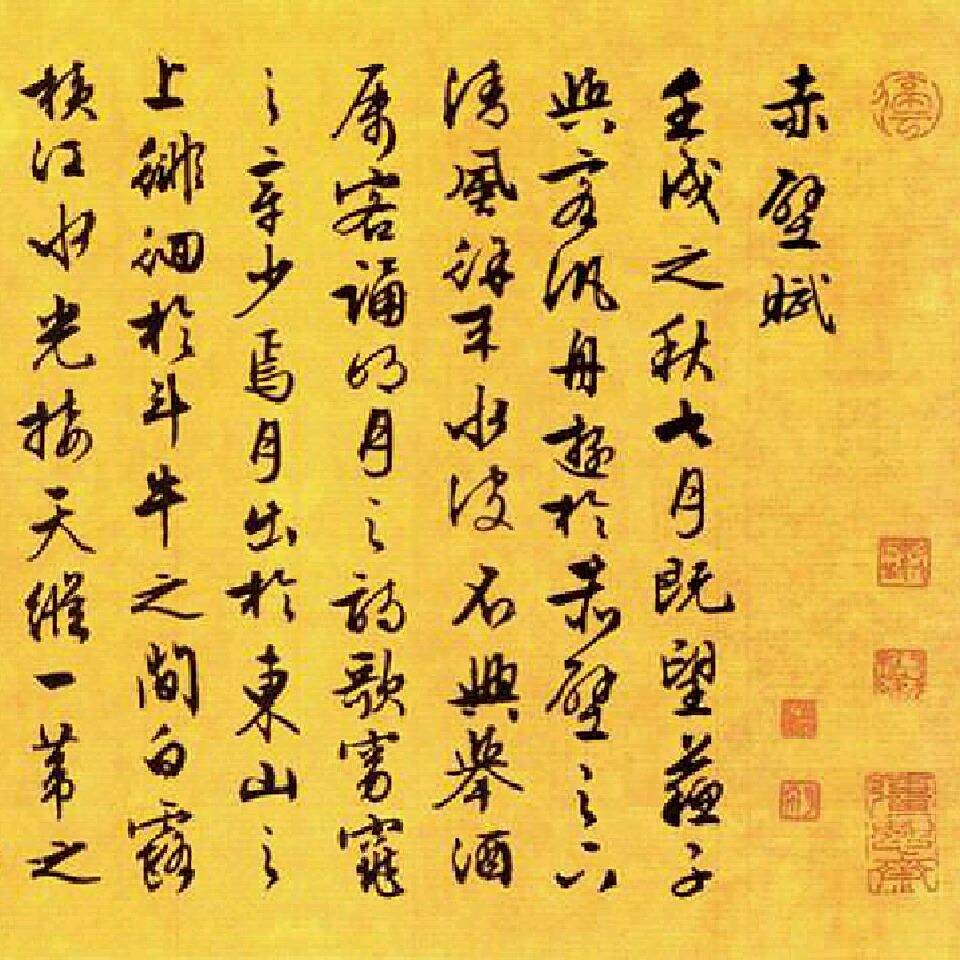 赤壁賦
壬戌之秋七月既望蘇子
與客汎舟遊於赤壁之下
清風徐来水波不興舉酒
属客誦明月之詩歌窈窕
之章少焉月出於東山之
上徘徊於斗牛之間白露
横江水光接天縱一葦之